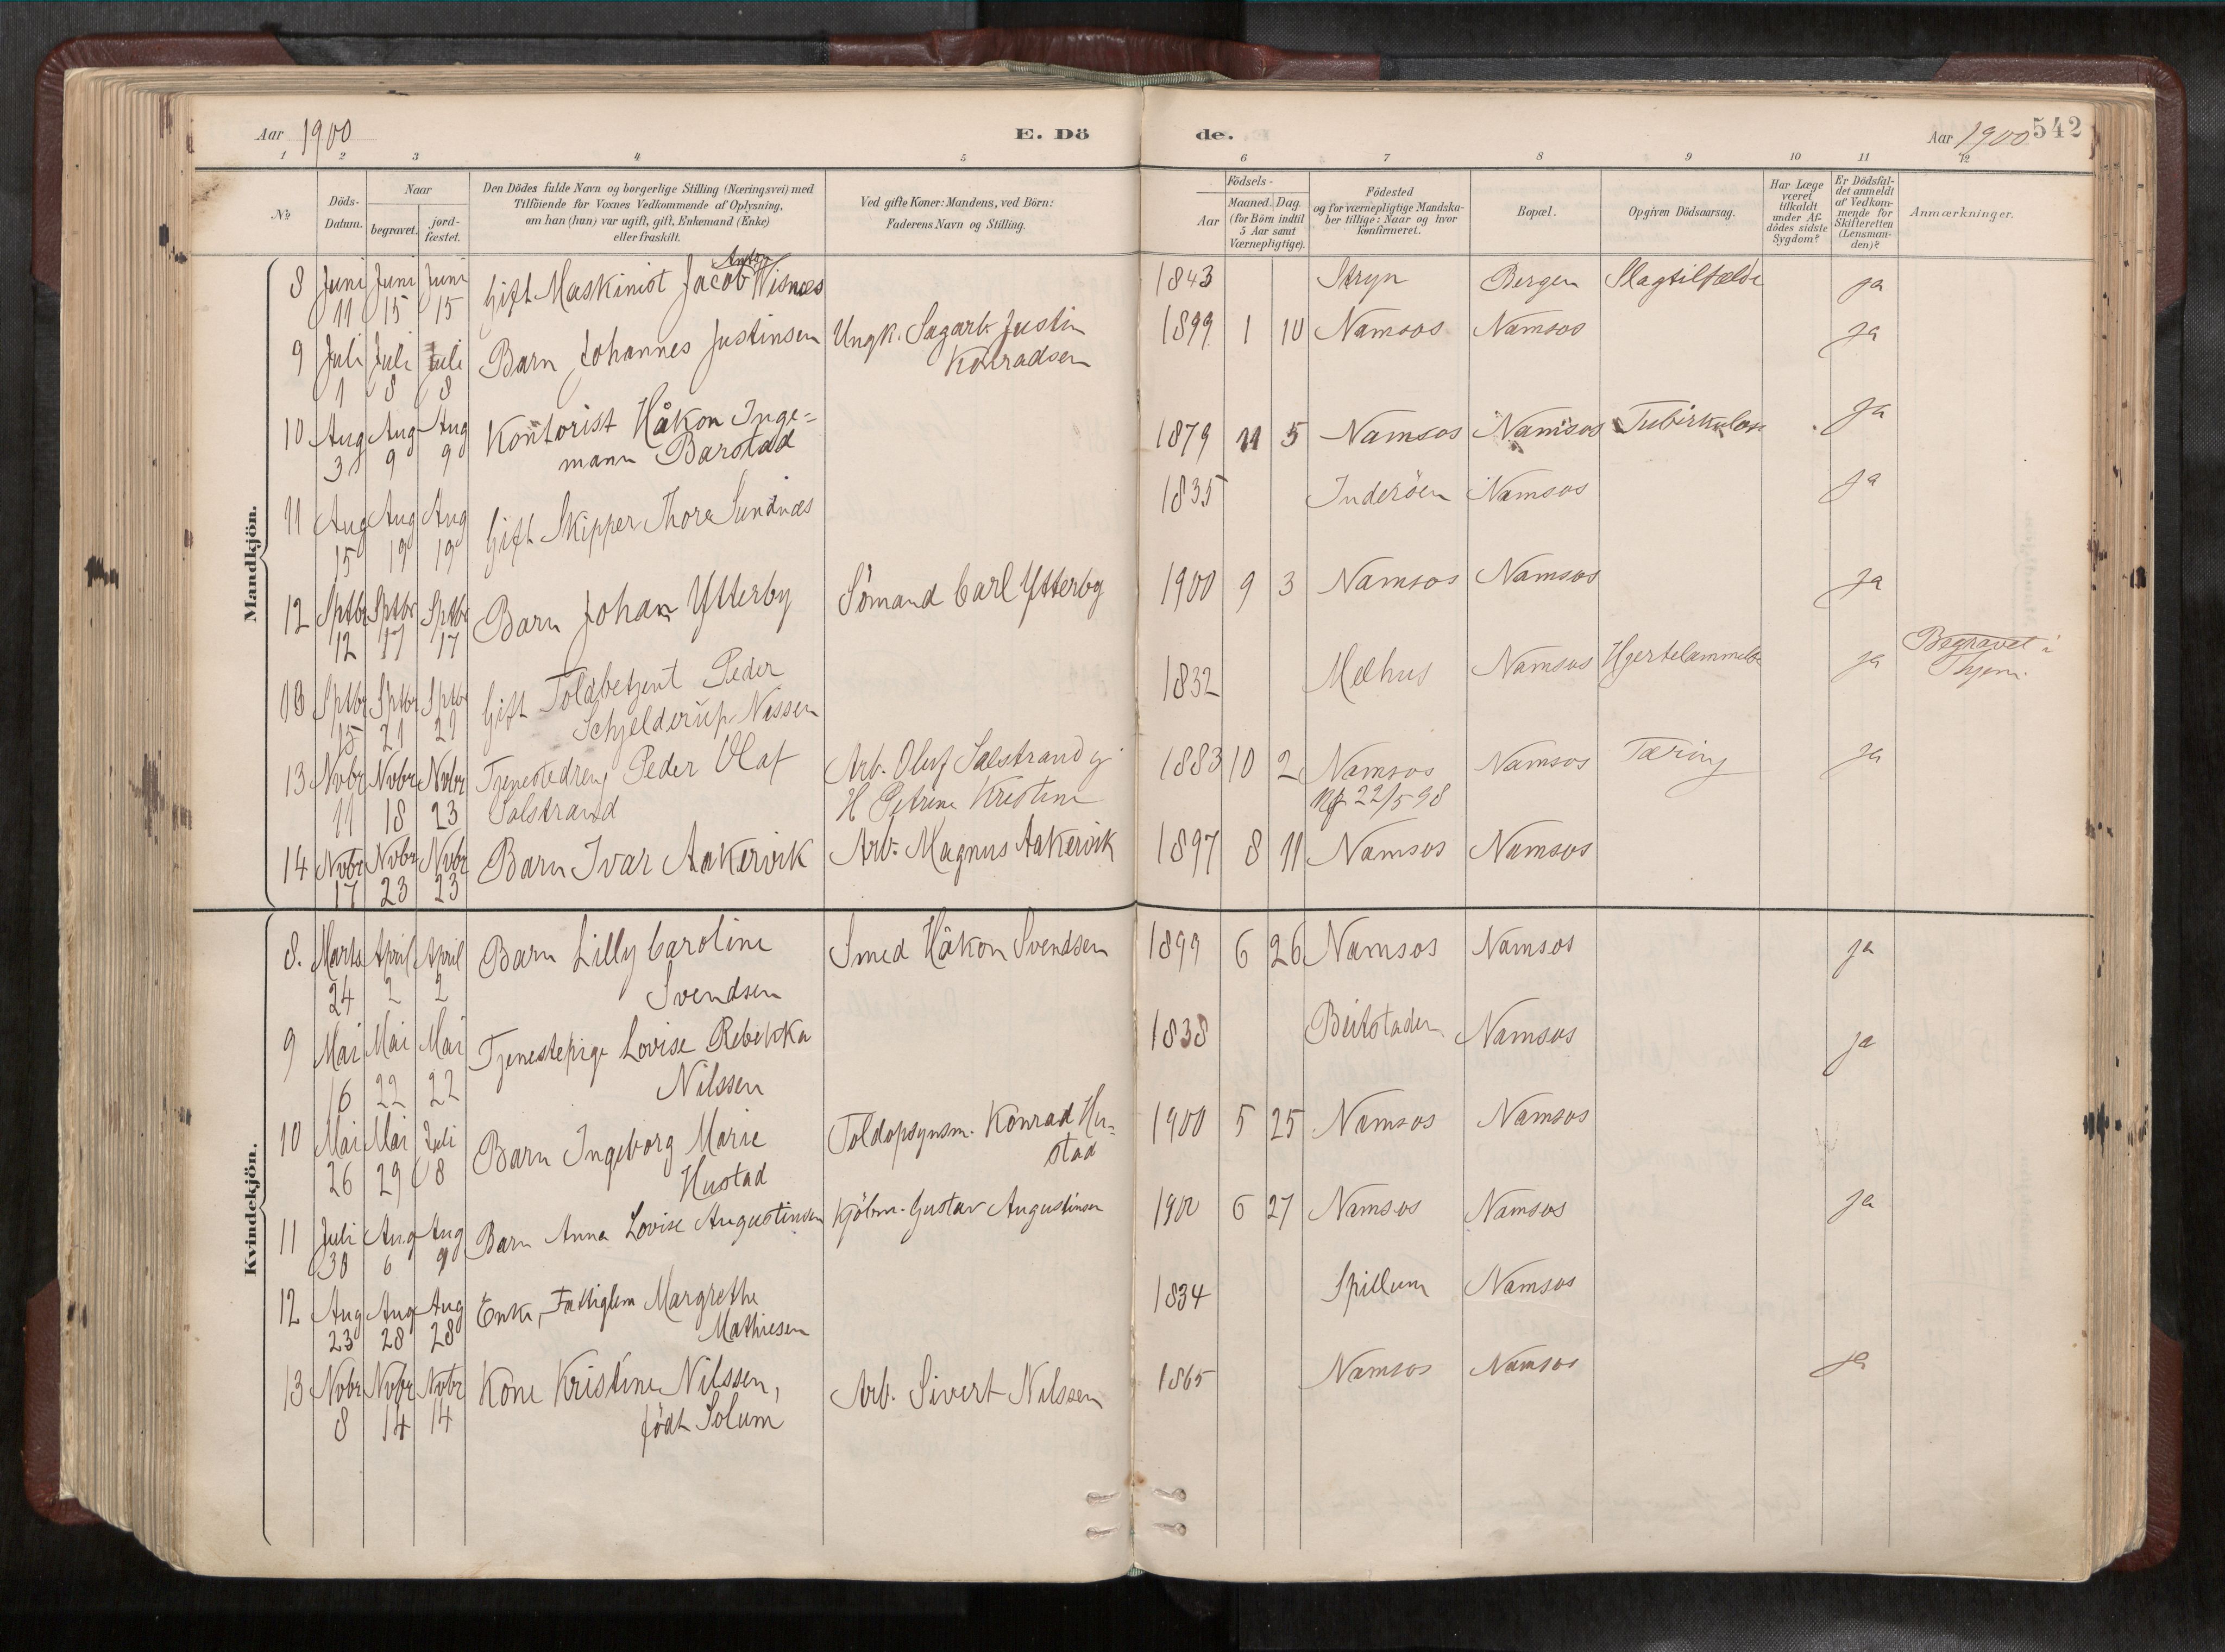 Aar 1900
E. Dö
de.
Aar 1900
542
1 2 3 4 5 6 7 8 9 10 11 12
№
Döds-
Datum.
Naar
begravet.
jord-
fæstet.
Den Dödes fulde Navn og borgerlige Stilling (Næringsvei) med
Tilföiende for Voxnes Vedkommende af Oplysning,
om han (hun) var ugift, gift, Enkemand (Enke)
eller fraskilt.
Ved gifte Koner: Mandens, ved Börn:
Faderens Navn og Stilling.
Födsels-
Aar
Maaned. Dag.
(for Börn indtil
5 Aar samt
Værnepligtige).
Födested
og for værnepligtige Mandska-
ber tillige: Naar og hvor
konfirmeret.
Bopæl.
Opgiven Dödsaarsag.
Har Læge
været
tilkaldt
under Af-
dödes sidste
Sygdom?
Er Dödsfal-
det anmeldt
af Vedkom-
mende for
Skifteretten
(Lensman-
den)?
Anmærkninger.
Mandkjön.
Anton
8 Juni Juni Juni Gift Maskinist Jacob Wisnæs 1843 Stryn Bergen Slagtilfælde ja
11 15 15
9 Juli Juli Juli Barn Johannes Justinsen Ungk. Sagarb. Justin 1899 1 10 Namsos Namsos ja
1 8 8 Konradsen
10 Aug Aug Aug Kontorist Håkon Inge= 1879 11 5 Namsos Namsos ja
3 9 9 mann Barstad
11 Aug Aug Aug Gift Skipper Thore Sundnæs 1835 Inderöen Namsos ja
15 19 19
12 Sptbr Sptbr Sptbr Barn Johan Ytterby Sömand Carl Ytterby 1900 9 3 Namsos Namsos ja
12 17 17
13 Sptbr Sptbr Sptbr Gift Toldbetjent Peder 1832 Melhus Namsos Hjertelammelse ja Begravet i
15 21 21 Schjelderup Nissen
13 Nvbr Nvbr Nvbr Tjenestedreng Peder Olaf Arb. Oluf Salstrand 1883 10 2 Namsos Namsos Tæring ja
11 18 23 Salstrand H Petrine Kristine 22/5 98
14 Nvbr Nvbr Nvbr Barn Ivar Aakervik Arb. Magnus Aakervik 1897 8 11 Namsos Namsos
17 23 23
Kvindekjön.
8. Marts April April Barn Lilly Caroline Smed Håkon Svendsen 1899 6 26 Namsos Namsos ja
24 2 2 Svendsen
9 Mai Mai Mai Tjenestepige Lovise Rebekka 1838 Beitstaden Namsos ja
16 22 22 Nilssen
10 Mai Mai Juli Barn Ingeborg Marie Toldopsynsm. Konrad Hu= 1900 5 25 Namsos Namsos
26 29 8 Hustad stad
11 Juli Aug Aug Barn Anna Lovise Augustinsen Kjöbm. Gustav Augustinsen 1900 6 27 Namsos Namsos ja
30 6 9
12 Aug Aug Aug Enke, Fattiglem Margrethe 1834 Spillum Namsos
23 28 28 Mathiesen
13 Nvbr Nvbr Nvbr Kone Kristine Nilssen, Arb. Sivert Nilssen 1865 Namsos Namsos ja
8 14 14 födt Solum